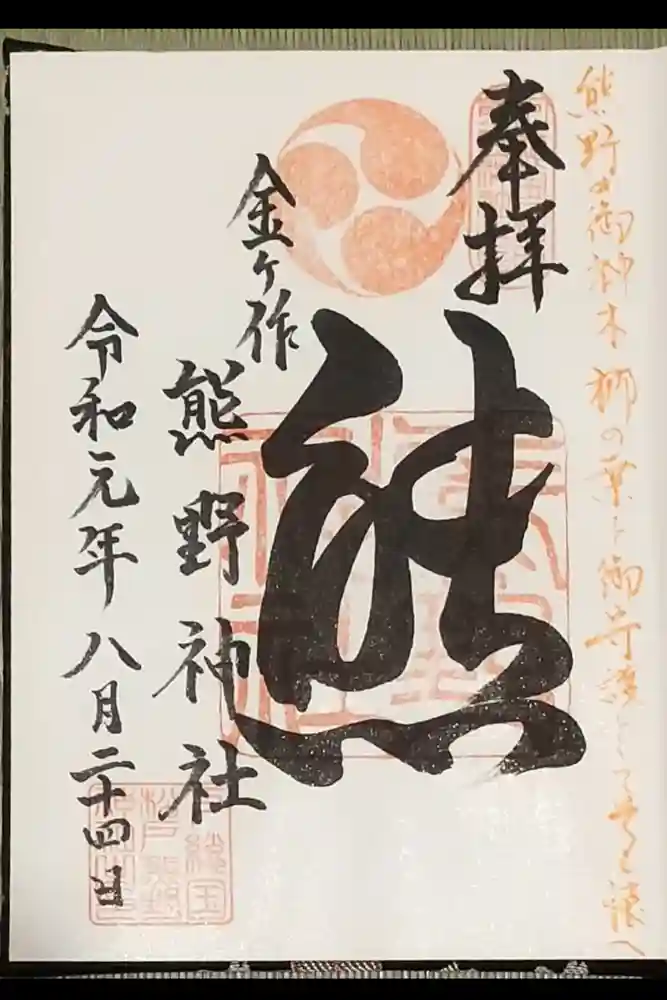 熊野の御神木梛の葉と御守護として
奉拝
熊
金ヶ作
熊野神社
令和元年八月二十四日